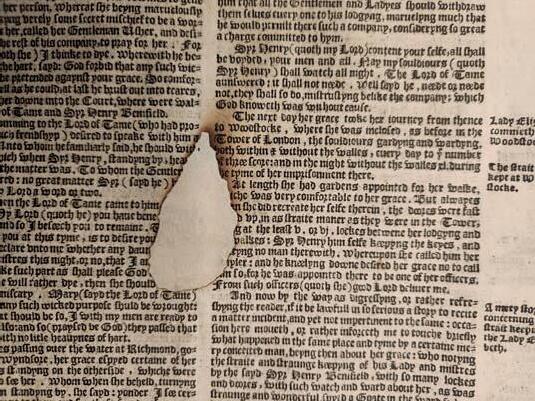 wherat she beyng merueilous
perly some secret mischief to be a wor-
her, called her Gentleman Usher, and desi-
he rest of his company, to pray for her. For
she) I thinke to dye. Wherewith he
her, sayd: God forbid that any such wic-
be pretended against your grace. So comfor-
ell as he could, at last he brust out into teares,
downe into the Court, where were wal-
of Tame and Syr Henry Benifield.
comming to the Lord of Tame (who had pro-
much frendshyp) desired to speake with him
vnto whom he familiarly said, he should wit
which when Syr Henry, standyng by, hea
the matter was. To whom the Gentlem
red: no great matter Syr (sayd he) b
a word or two.
the Lord of Tame came to him
My Lord (quoth he) you haue bene
and so I beseech you to remaine.
you at this tyme, is to desire your
declare vnto me whether any dan
this night, or no, that I an
take such part as shall please God
will rather dye, then she should
miscary. Mary (sayd the Lord of Tame)
any such wicked purpose should be wrought
it should be so, I with my men are ready to
also: and so (praysed be God) they passed that
with no litle heauynes of hart.
passing ouer the water at Richmond, go-
Wyndsore, her grace espyed certaine of her
standyng on the otherside, which were
to see her. Whom when she beheld, turnyng
standyng by, she sayd: yonder I see cer-
him that all the Gentlemen and Ladyes should withdraw
them selues euery one to his lodgyng, maruelyng much that
he would permit there such a company, consideryng so great
a charge committed to hym.
Syr Henry (quoth my Lord) content your selfe, all shall
be voyded, your men and all. Nay my souldiours (quoth
Syr Henry) shall watch all night. The Lord of Tame
aunswered: it shall not neede. Well sayd he, neede or neede
not, they shall so do, mistrustyng belike the company: which
God knoweth was without cause.
The next day her grace tooke her iourney from thence
to Woodstocke, where she was inclosed, as before in the
Tower of London, the souldiours gardyng and wardyng,
both within & without the walles, euery day to yͤ number
of three score: and in the night without the walles xl. during
the tyme of her imprisonment there.
At length she had gardens appointed for her walke,
which was very comfortable to her grace. But alwayes
when she did recreate her selfe therein, the doores were fast
locked vp, in as straite maner as they were in the Tower,
at the least v. or vj. lockes betwene her lodgyng and
walkes: Syr Henry him selfe keepyng the keyes, and
no man therewith. Whereupon she called him her
Gayler: and he kneelyng downe desired her grace no to call
him so, for he was appointed there to be one of her officers.
From such officers (quoth she) good Lord deliuer me.
And now by the way as digressyng, or rather refre-
shyng the reader, if it be lawfull in so serious a story to recite
a matter incident, and yet not impertinent to the same: occa-
sion here moueth, or rather inforceth me to touche briefly
what happened in the same place and tyme by a certaine me-
ry conceited man, beyng then about her grace: who notyng
the straite and straunge keepyng of his Lady and mistres
by the sayd Syr Henry Benifield, with so many lockes
and doores, with such watch and ward about her, as was
straunge and wonderfull
Lady Eliz
commeth
Woodsto
The strait
kept at W
stocke.
A mery story
concernyng
strait keepi
the Lady E
beth.